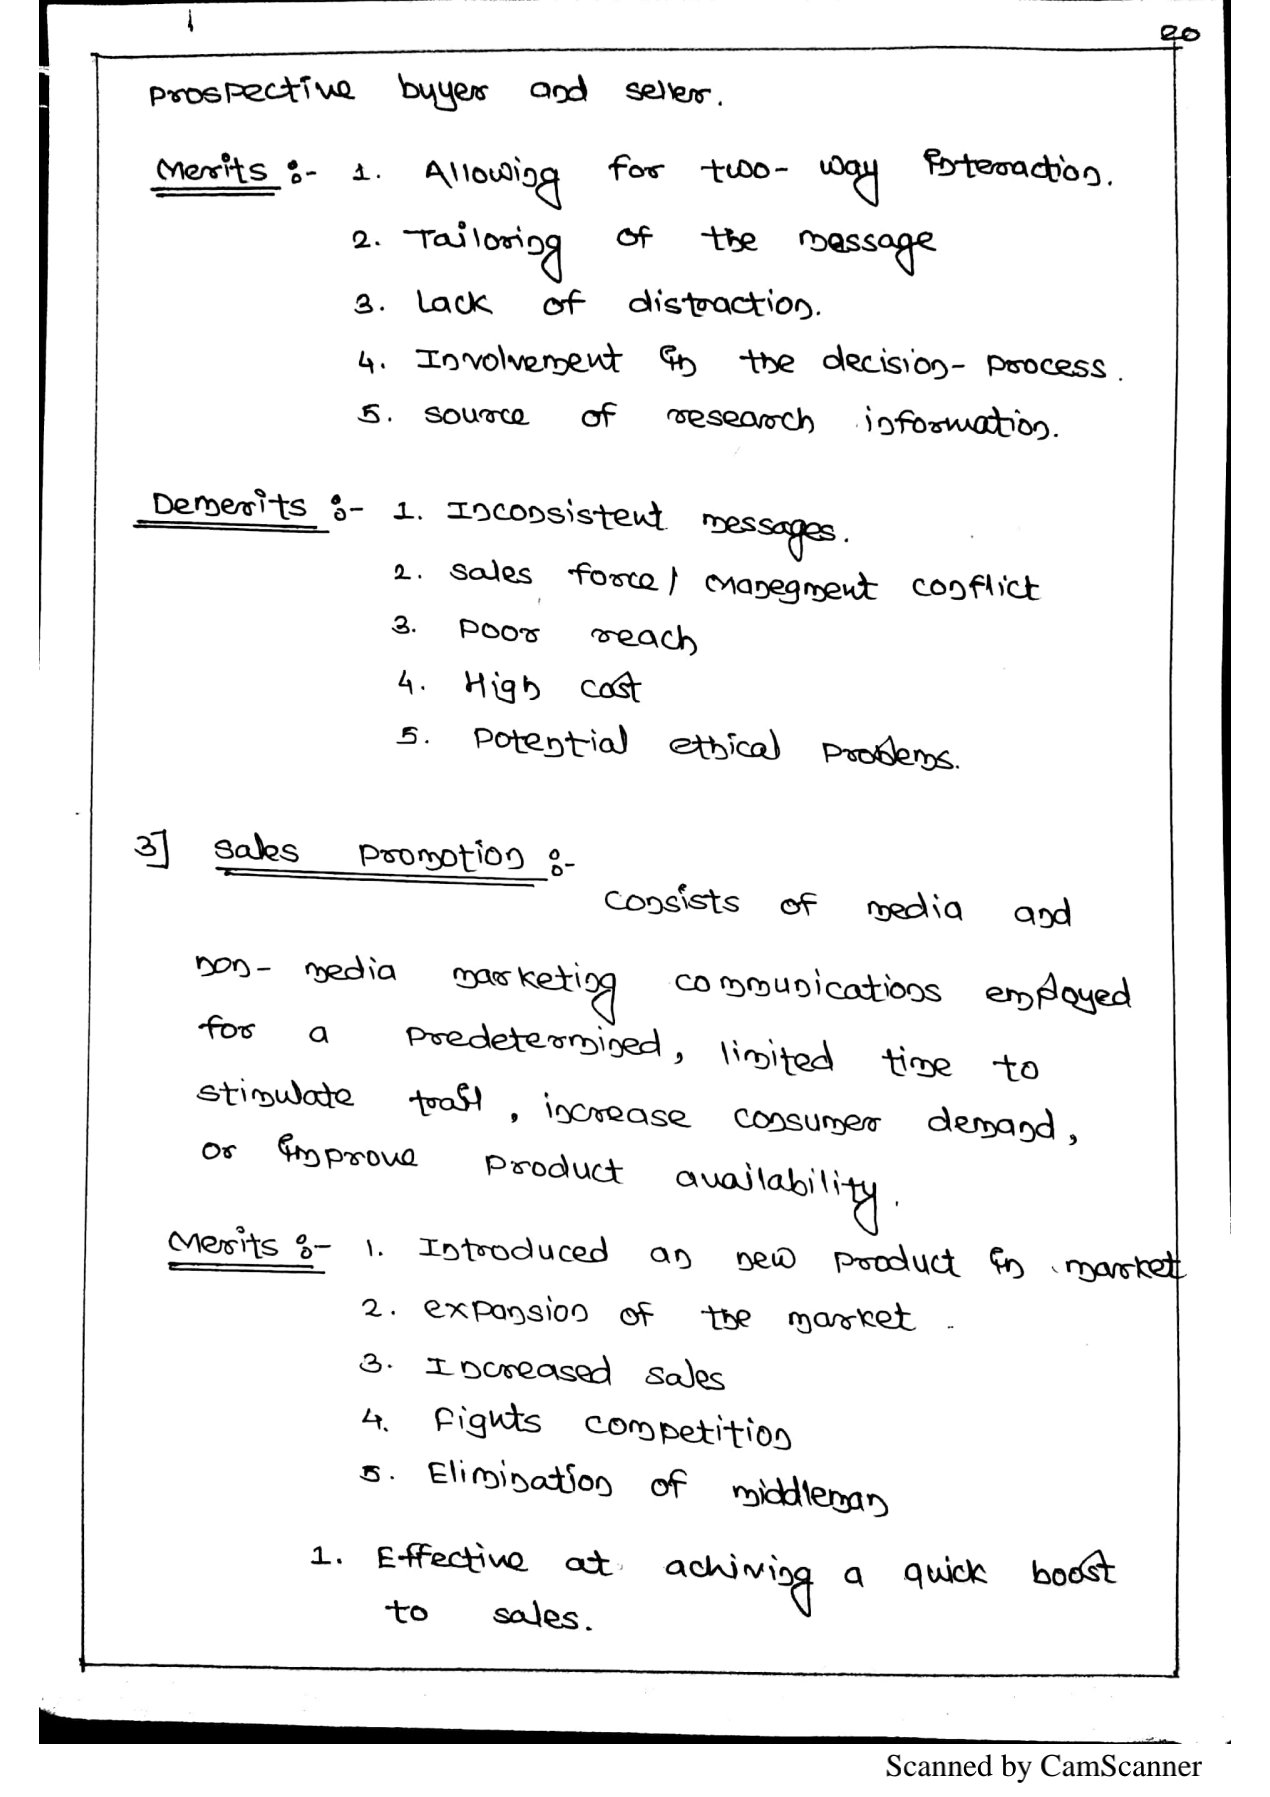 20
Prospective buyer and seller.
Merits :- 1. Allowing for two-way interaction.
2. Tailoring of the message
3. Lack of distraction.
4. Involvement in the decision-process.
5. source of research information.
Demerits :- 1. Inconsistent messages.
2. sales force/ manegment conflict
3. Poor reach
4. High cost
5. Potential ethical problems.
3] sales promotion :-
consists of media and
non-media marketing communications employed
for a predetermined, limited time to
stimulate trail, increase consumer demand,
or improve product availability.
Merits :- 1. Introduced an new product in market
2. expansion of the market.
3. Increased sales
4. Fights competition
5. Elimination of middleman
1. Effective at achiving a quick boost
to sales.
Scanned by CamScanner